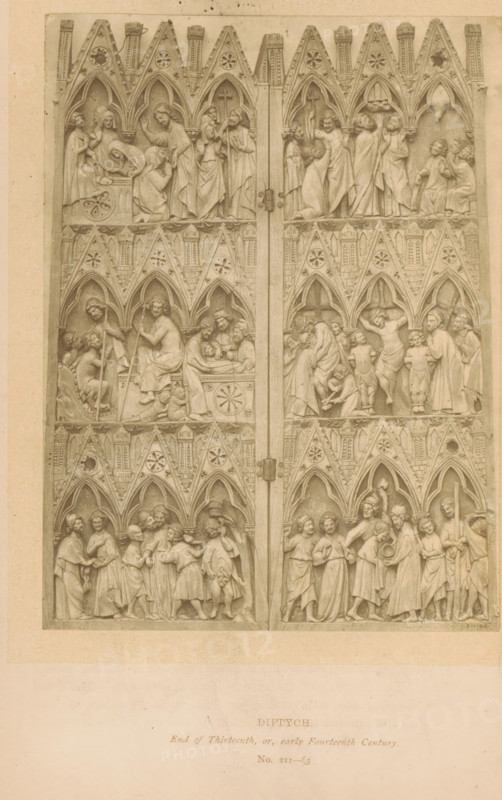 DIPTYCH.
End of Thirteenth, or, early Fourteenth Century.
No. 211—65